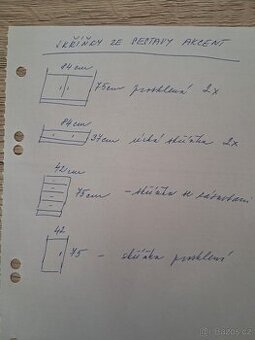 SKŘÍŇKY ZE SESTAVY AKCENT
84cm
75cm prosklená 2x
84cm
37cm nízká skříňka 2x
42cm
75cm - skříňka se zásuvkami
42
75 - skříňka prosklení